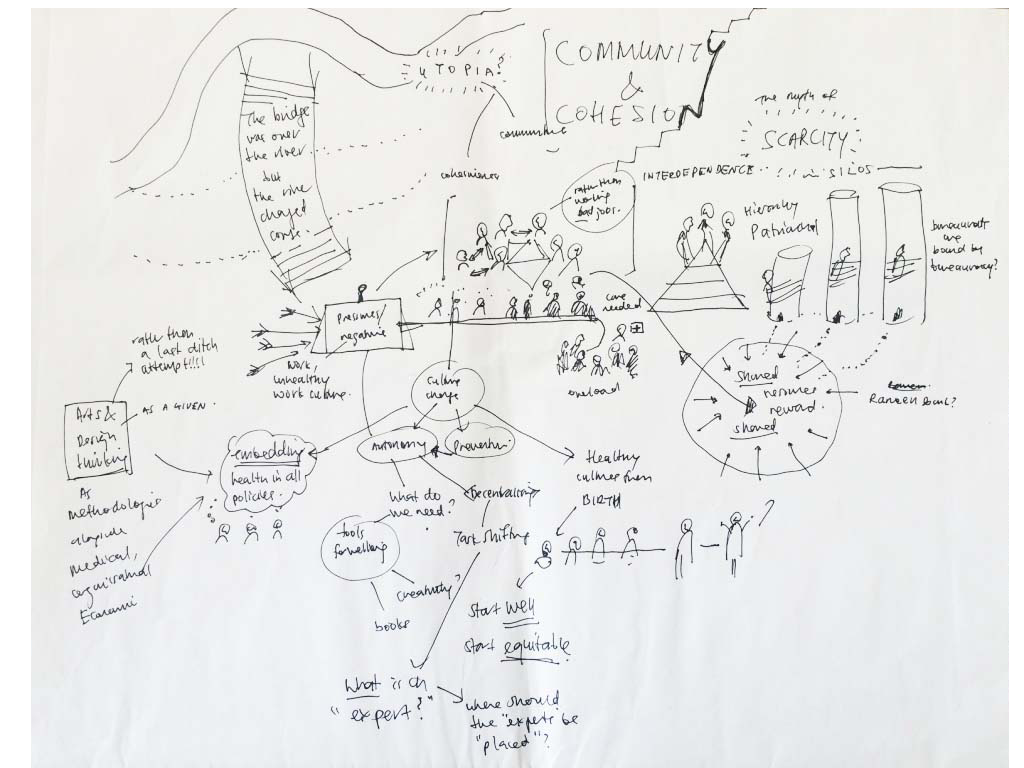 UTOPIA?
COMMUNITY
&
COHESION
The myth of
SCARCITY
The bridge
was over
the river
but
the
changed
course.
INTERDEPENDENCE
SILOS
rather than
working
bad jobs.
Hierarchy
bound by
care
needed
overload
presumes
negative
rather than
a last ditch
attempt!!!!
work,
unhealthy
work culture.
Arts &
Design
thinking
AS A GIVEN.
As
alongside
medical,
culture
change
AUTONOMY
embedding
health in all
policies.
Healthy
cultures from
BIRTH
shared
resource
reward
shared
what do
we need?
Task shifting
tools
creativity?
books
start well
start equitable
What is an
"expert?"
where should
the "experts be
"placed"?
?